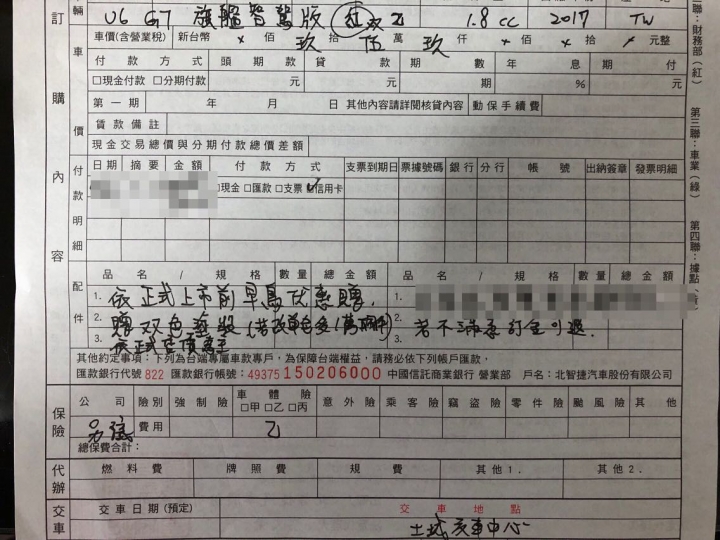 訂 輛 U6 GT 旗艦智駕版 紅 双色 1.8 cc 2017 TW
車 車價(含營業稅) 新台幣 × 佰 玖 拾 伍 萬 玖 仟 × 佰 × 拾 × 元整
付款方式 頭期款 貸款 期數 年息 期付
購 □現金付款 □分期付款 元 元 期 % 元
第一期 年 月 日 其他內容請詳閱核貸內容 動保手續費
價 貸款備註
現金交易總價與分期付款總價差額
內 付款明細 日期 摘要 金額 付款方式 支票到期日 票據號碼 銀行 分行 帳號 出納簽章 發票明細
□現金 □匯款 □支票 ☑信用卡
容
配件 品名/規格 數量 總金額 品名/規格 數量 總金額
1. 依正式上市前早鳥优惠贈. 1.
2. 贈双色塗裝 2. 若不滿意訂金可退.
3. 3.
其他約定事項：下列為台端專屬車款專戶，為保障台端權益，請務必依下列帳戶匯款，
匯款銀行代號 822 匯款銀行帳號：49375150206000 中國信託商業銀行 營業部 戶名：北智捷汽車股份有限公司
保險 公司 險別 強制險 車體險 □甲 □乙 □丙 意外險 乘客險 竊盜險 零件險 颱風險 其他
費用 乙
總保費合計：
代辦 燃料費 牌照費 規費 其他1. 其他2.
交車 交車日期(預定) 交車地點
土城交車中心
聯：財務部(紅) 第三聯：車業(綠) 第四聯：據點